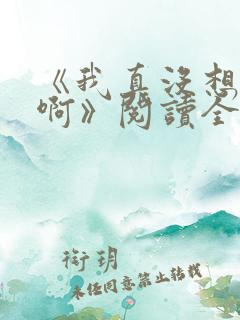 《我真没想
啊》阅读全
衔玥
未经同意禁止转载